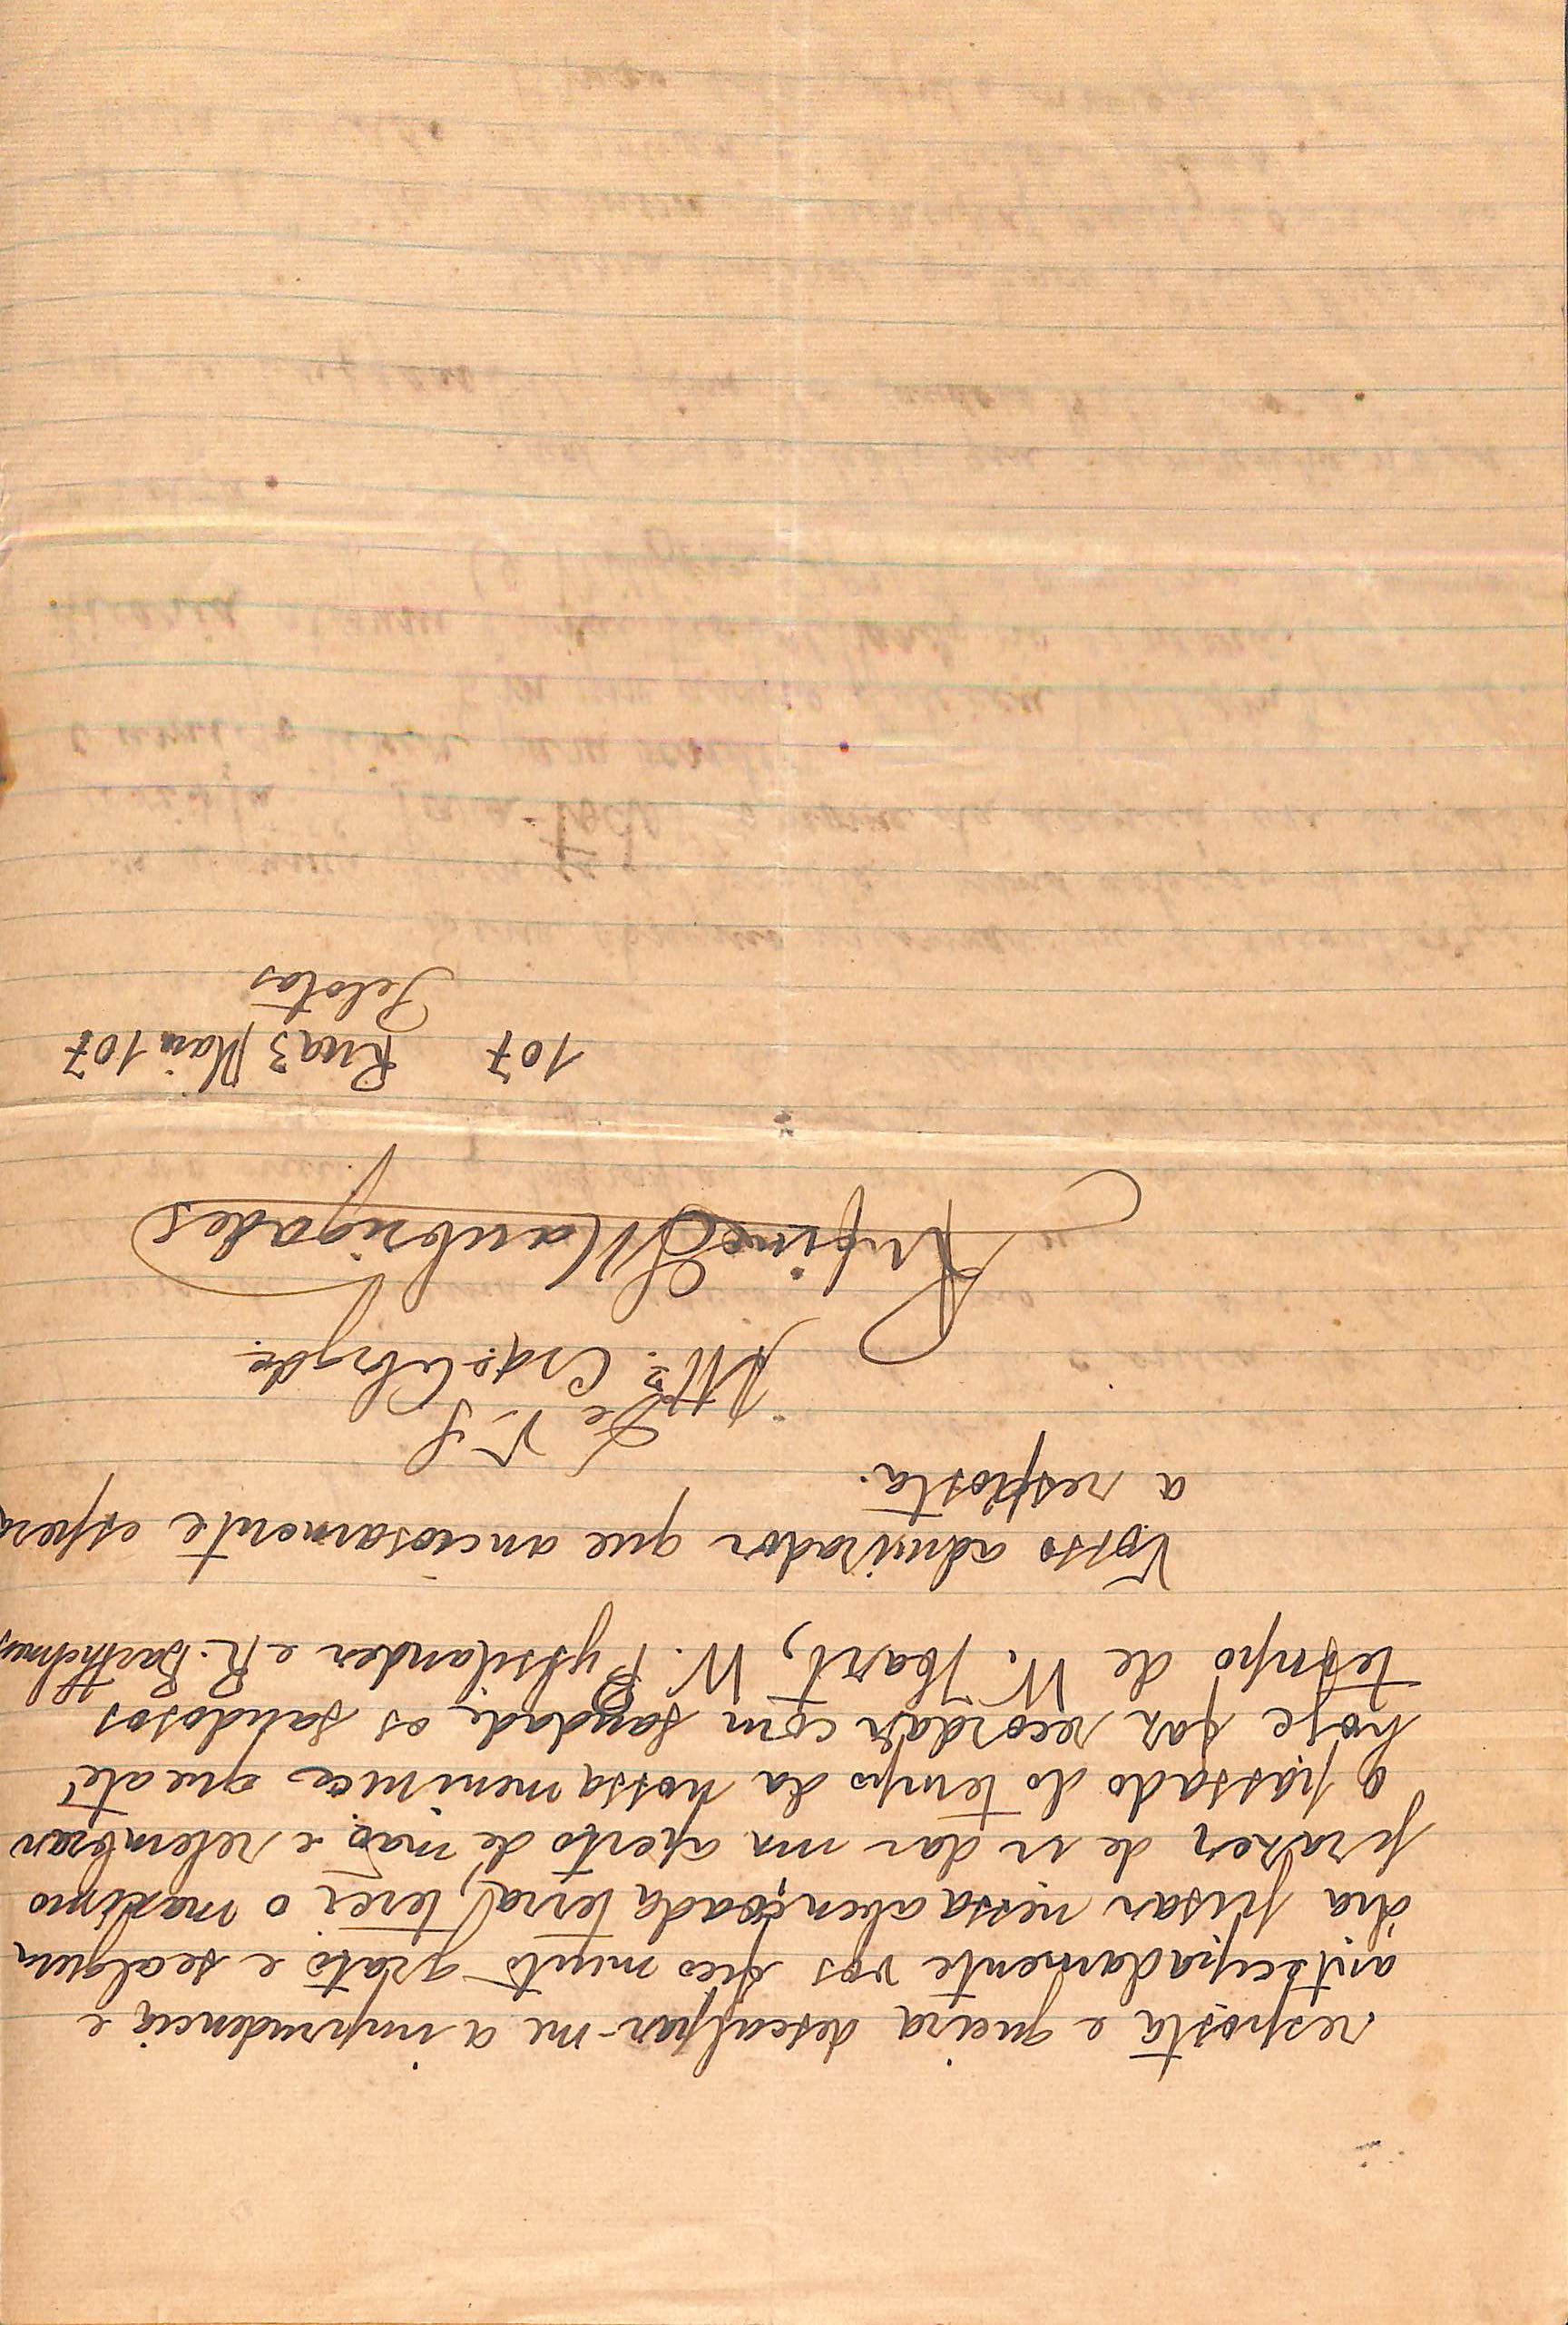 resposta e queira desculpar-me a imprudencia e
antecipadamente vos fico muito grato e se algum
dia pisar nessa abençoada terra, terei o maximo
prazer de ir dar um aperto de mão e relembrar
o passado do tempo da nossa meninice que até
hoje faz recordar com saudade os saudosos
tempo de W. Hart, W. e R. Barthelmes
Vosso admirador que anciosamente espera
a resposta.
De V. S.
Att.º Crdº Obrgdº
Rufino S. Maubrigades
107 Rua 3 Maio 107
Pelotas